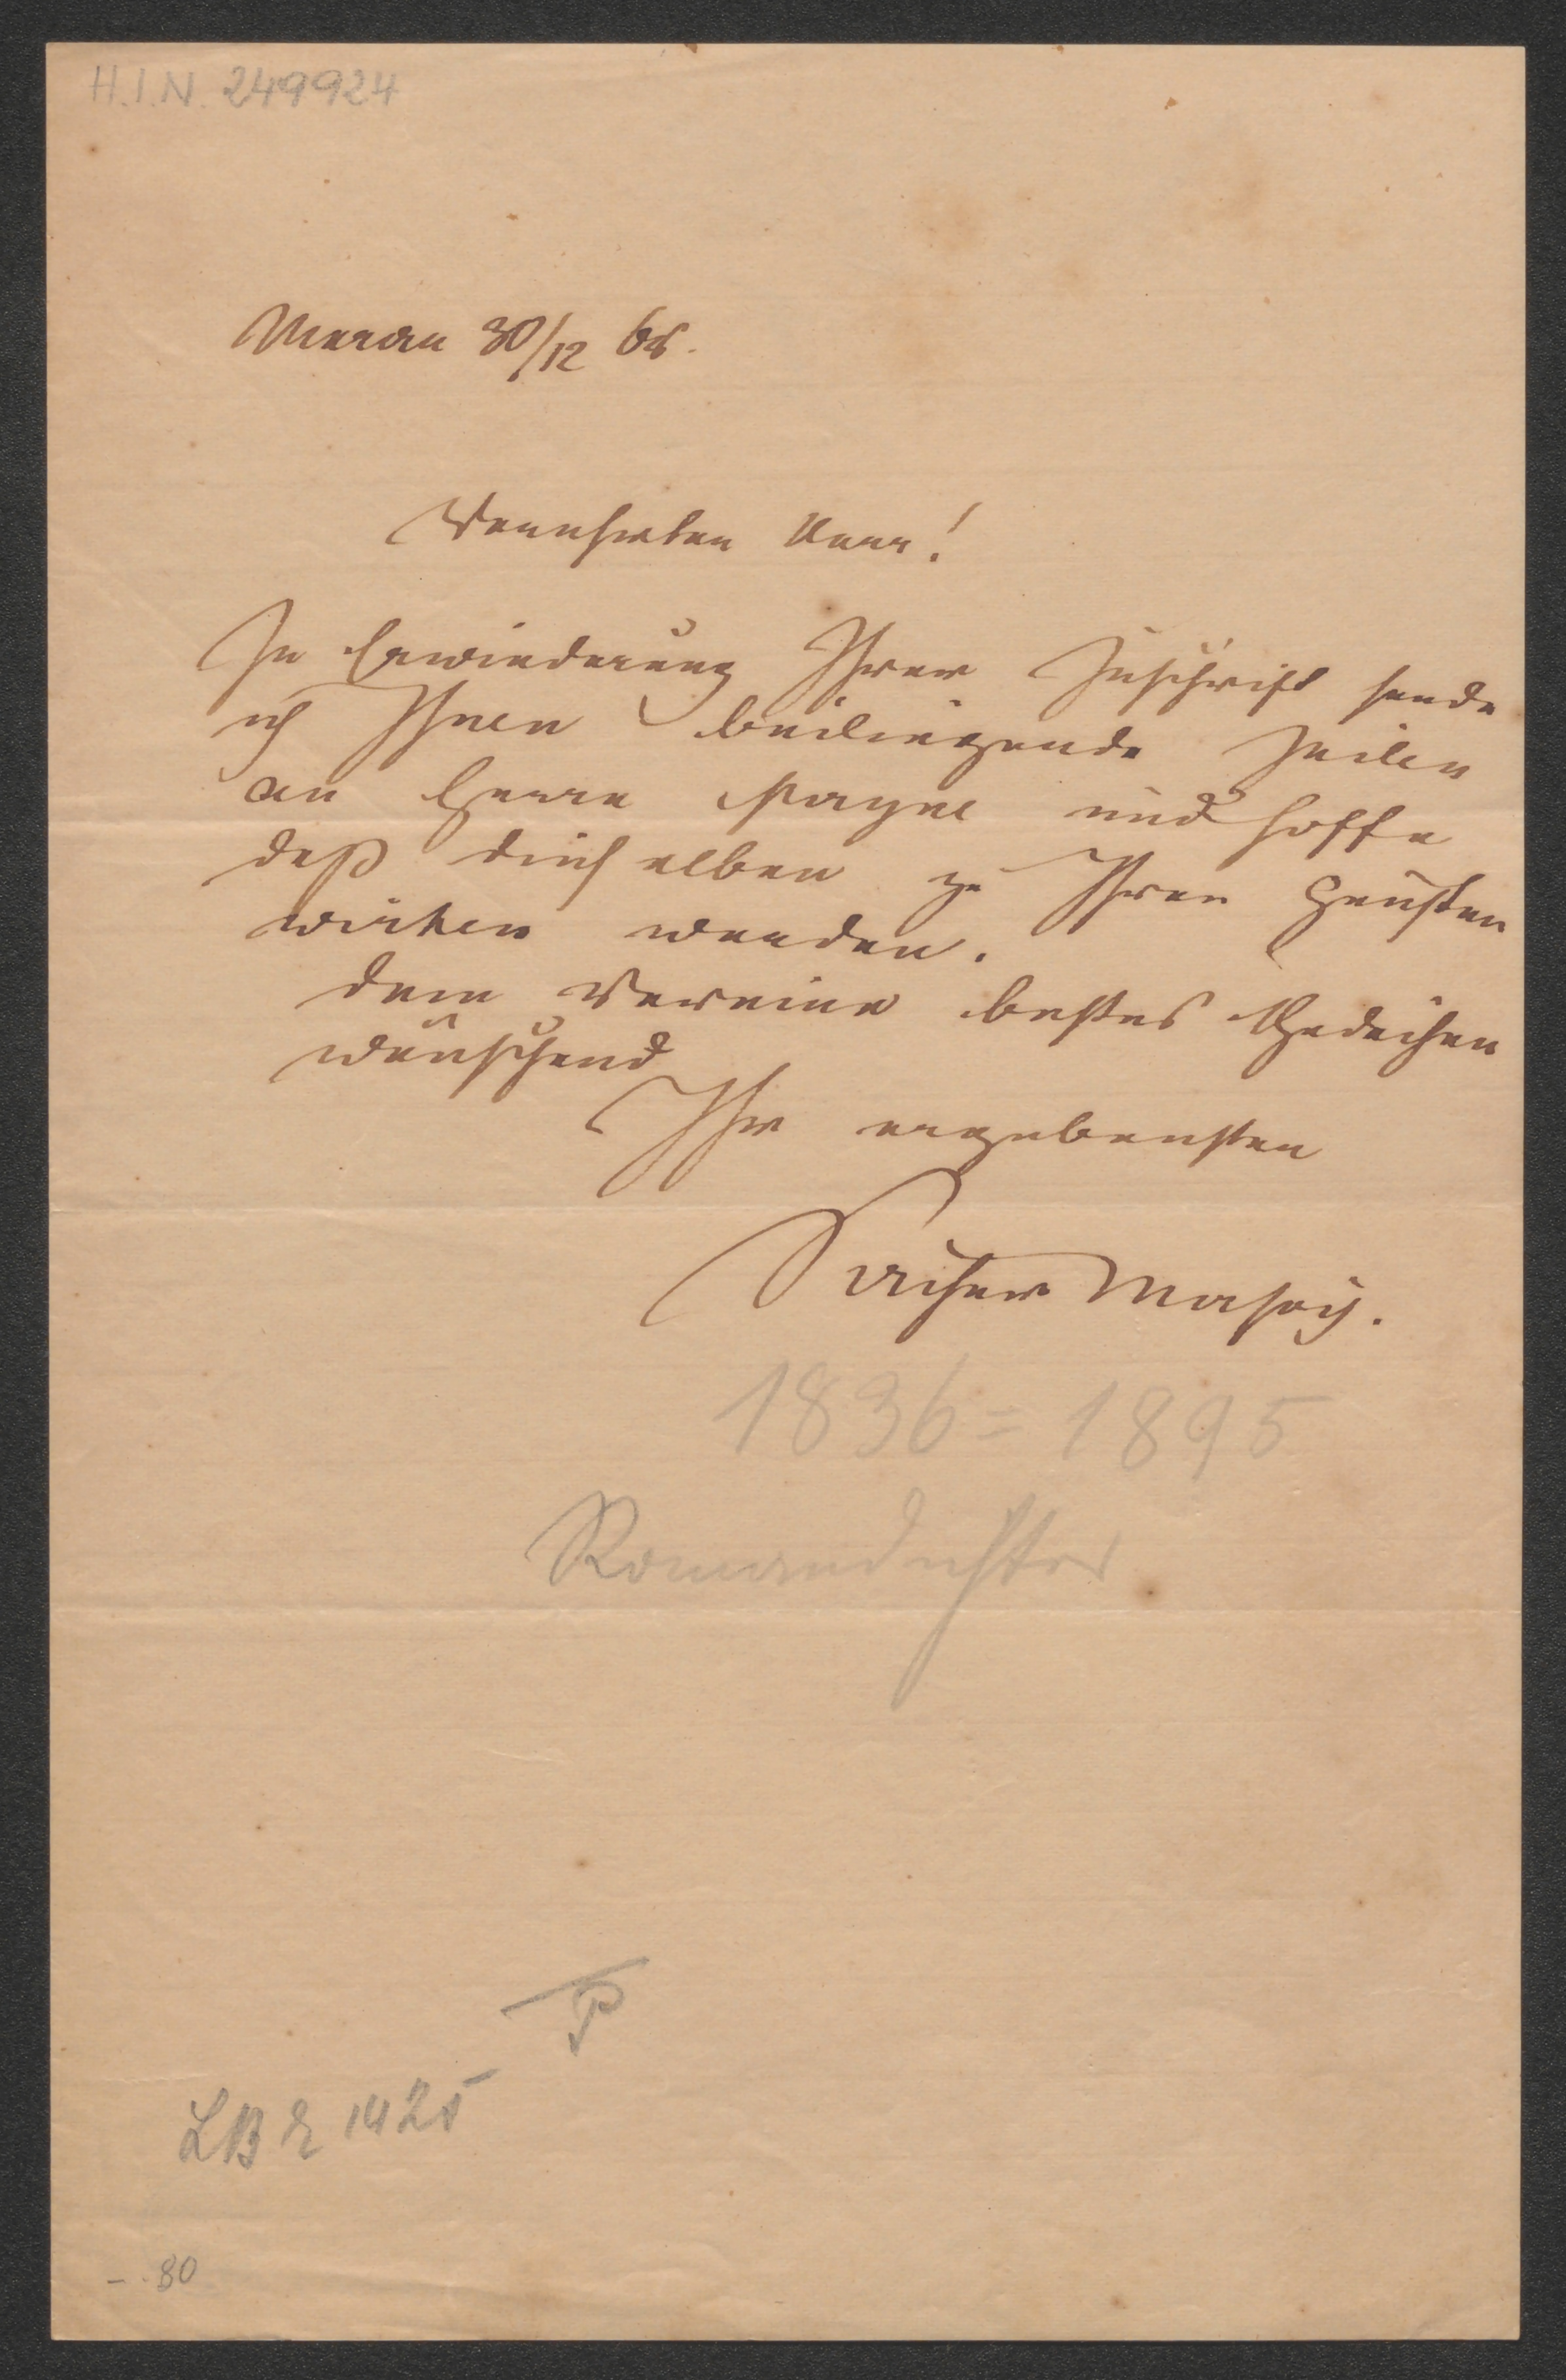 H.I.N. 249924
Meran 30/12 68.
Verehrter Herr!
In Erwiederung Ihrer Zuschrift sende
ich Ihnen beiliegende Zeilen
an Herrn Payne und hoffe
daß dieselben zu Ihren Gunsten
wirken werden.
Dem Vereine bestes Gedeihen
wünschend
Ihr ergebenster
Sacher Masoch.
1836 = 1895
Romandichter
P
LBE 1425
-.80